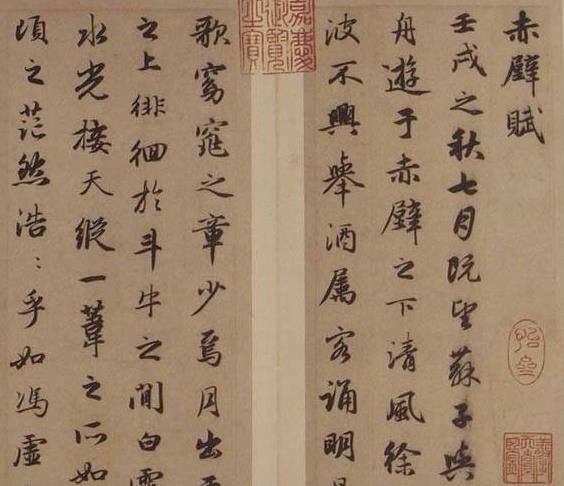 赤壁賦
壬戌之秋七月既望蘇子與
舟遊于赤壁之下清風徐
波不興舉酒属客誦明
歌窈窕之章少焉月出
之上徘徊於斗牛之間白
水光接天縱一葦之所如
頃之茫然浩〻乎如馮虛
嘉慶御覽之寶